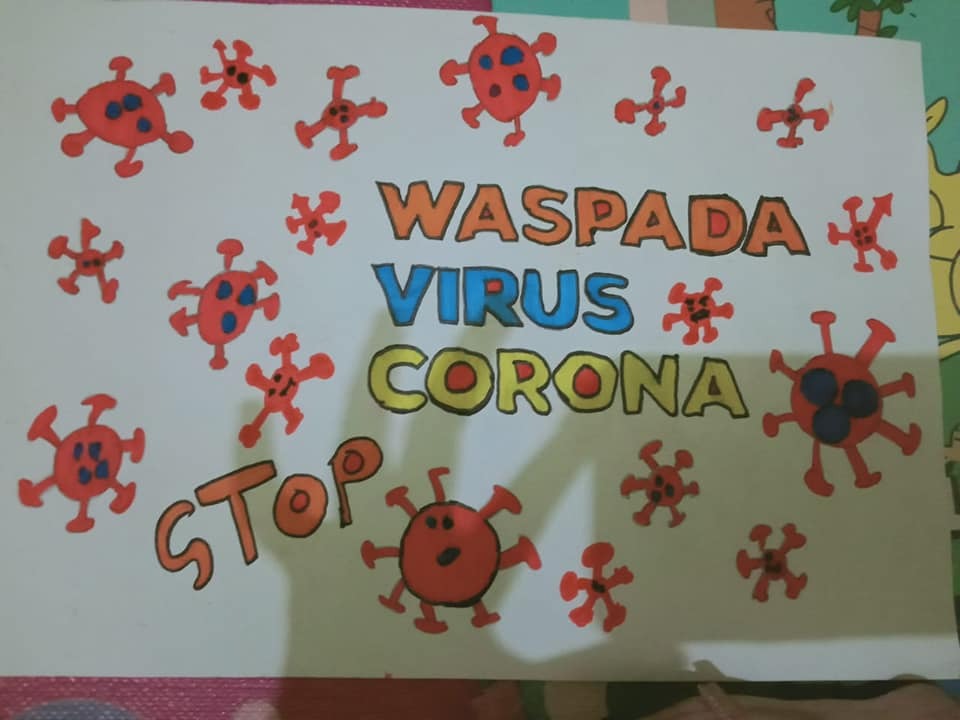 WASPADA
VIRUS
CORONA
STOP